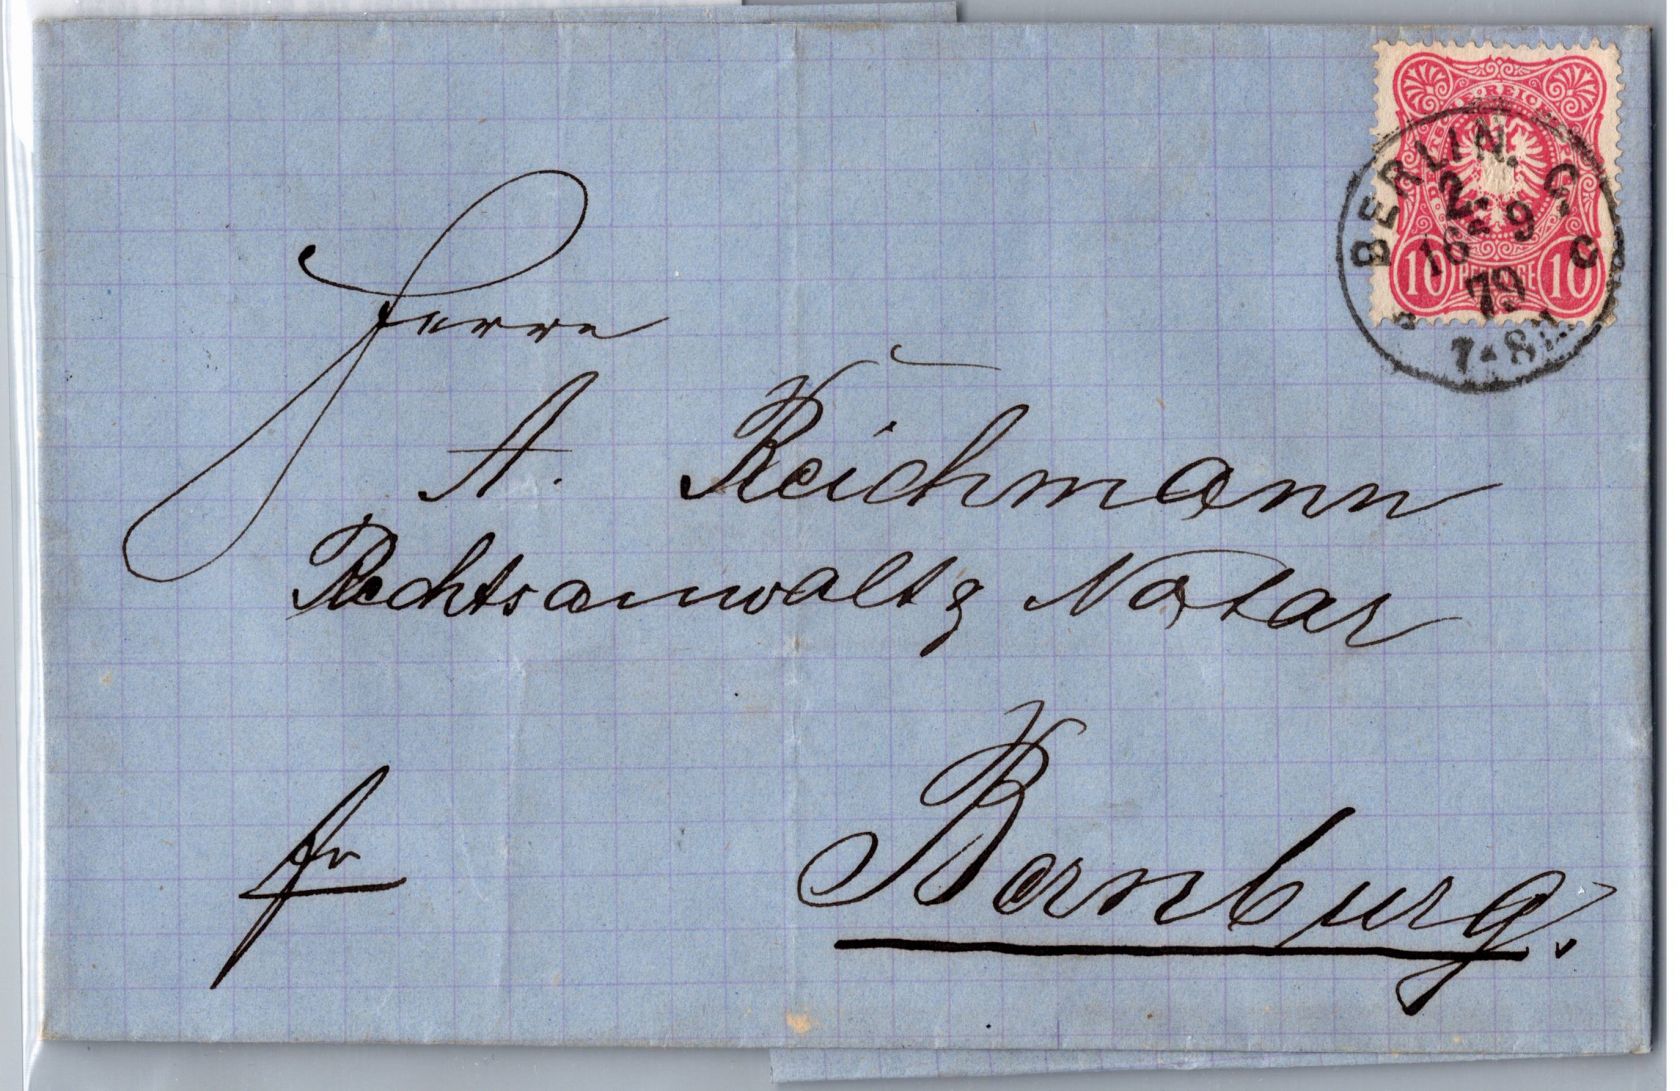 REICHS
10 PFENNIGE 10
BERLIN, C.
16 9
79
7-8N
Herrn
A. Reichmann
Rechtsanwalt & Notar
fr
Bernburg.